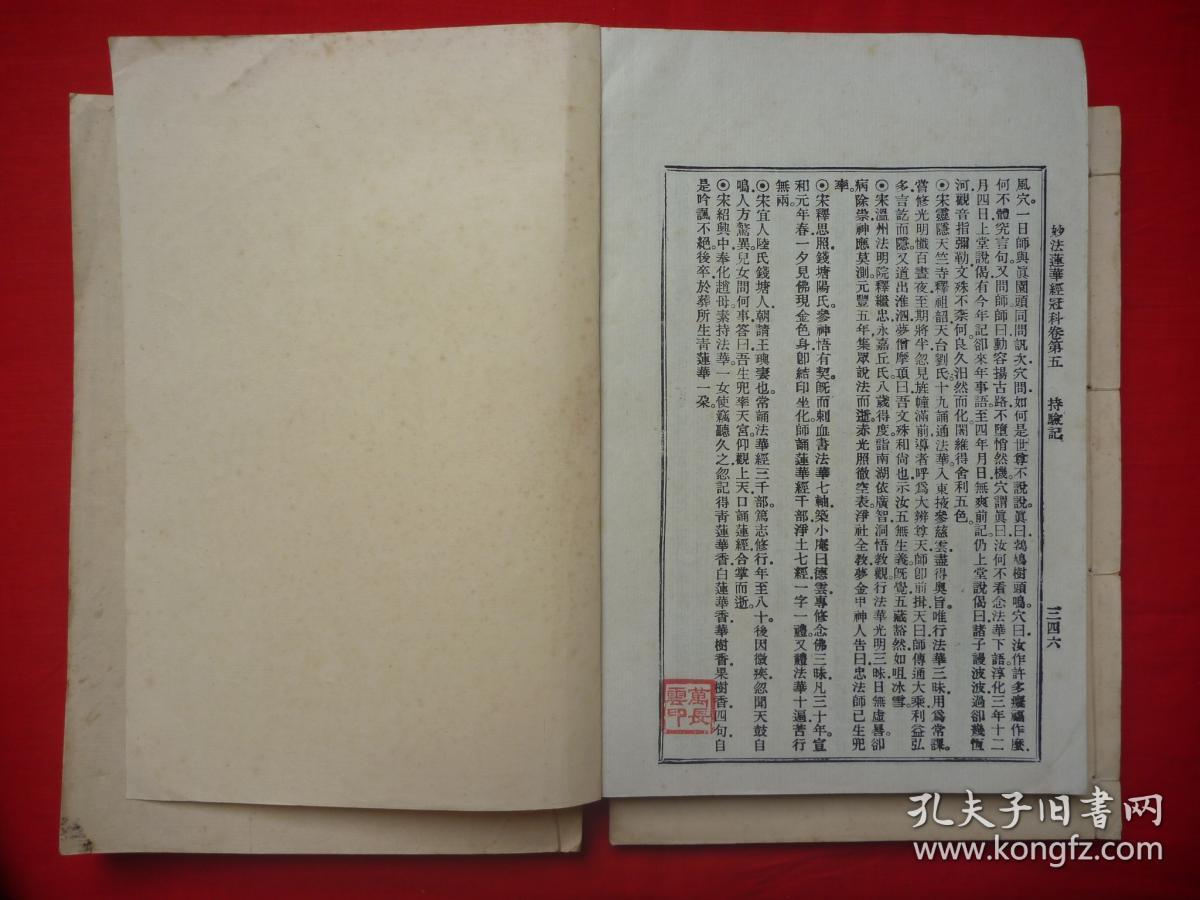 妙法蓮華經冠科卷第五 持驗記 三四六
風穴。一日師與眞園頭同問訊次。穴問。如何是世尊不說說。眞曰。鵓鳩樹頭鳴。穴曰。汝作許多癡福作麼。
何不體究言句。又問師。師曰。動容揚古路。不墮悄然機。穴謂眞曰。汝何不看念法華下語。淳化三年十二
月四日。上堂說偈。有今年記卻來年事語。至四年月日無爽前記。仍上堂說偈曰。諸子謾波波。過卻幾恆
河。觀音指彌勒。文殊不柰何。良久。泊然而化。闍維得舍利五色。
⊙宋靈隱天竺寺釋祖韶。天台劉氏。十九誦通法華。入東掖參慈雲。盡得奧旨。唯行法華三昧。用爲常課。
嘗修光明懺百晝夜。至期將半。忽見旌幢滿前。導者呼爲大辨尊天。師卽前揖。天曰。師傳通大乘。利益弘
多。言訖而隱。又道出淮泗。夢僧摩項曰。吾文殊和尙也。示汝五無生義。旣覺。五藏豁然如咀冰雪。
⊙宋溫州法明院釋繼忠。永嘉丘氏。八歲得度。詣南湖依廣智。洞悟教觀。行法華光明三昧。日無虛晷。卻
病除祟。神應莫測。元豐五年。集眾說法而逝。赤光照徹空表。淨社全教夢金甲神人告曰。忠法師已生兜
率。
⊙宋釋思照。錢塘陽氏。參神悟有契。旣而刺血書法華七軸。築小庵曰德雲。專修念佛三昧。凡三十年。宣
和元年春。一夕見佛現金色身。卽結印坐化。師誦蓮華經千部。淨土七經。一字一禮。又禮法華十遍。苦行
無兩。
⊙宋宜人陸氏。錢塘人。朝請王璵妻也。常誦法華經三千部。篤志修行。年至八十。後因微疾。忽聞天鼓自
鳴。人方驚異。兒女問何事。答曰。吾生兜率天宮。仰觀上天。口誦蓮經。合掌而逝。
⊙宋紹興中奉化趙母。素持法華。一女使竊聽久之。忽記得靑蓮華香。白蓮華香。華樹香。果樹香。四句。自
是吟諷不絕。後卒。於葬所生靑蓮華一朶。
萬長
雲印
孔夫子旧书网
www.kongfz.com